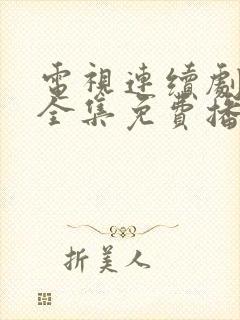 電視連續劇
全集免費播
折美人